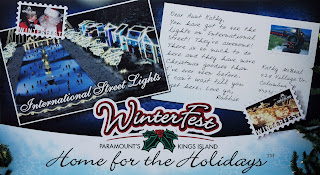 WINTERFEST
International Street Lights
Dear Aunt Kathy,
You have got to see the
Lights on International
They're awesome!
There is so much to do
and they have more
Christmas lights than
I've ever seen before.
Can't wait till you
get here. Love ya,
WINTERFEST
WinterFest
PARAMOUNT'S KINGS ISLAND
Home for the Holidays™